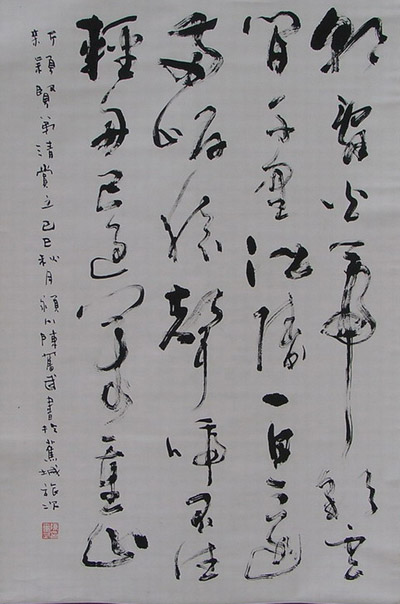 朝辭白帝彩雲
間千里江陵一日還
兩岸猿聲啼不住
輕舟已過萬重山
清賞 己巳秋月潁川陳篤武書於蕉城旅次